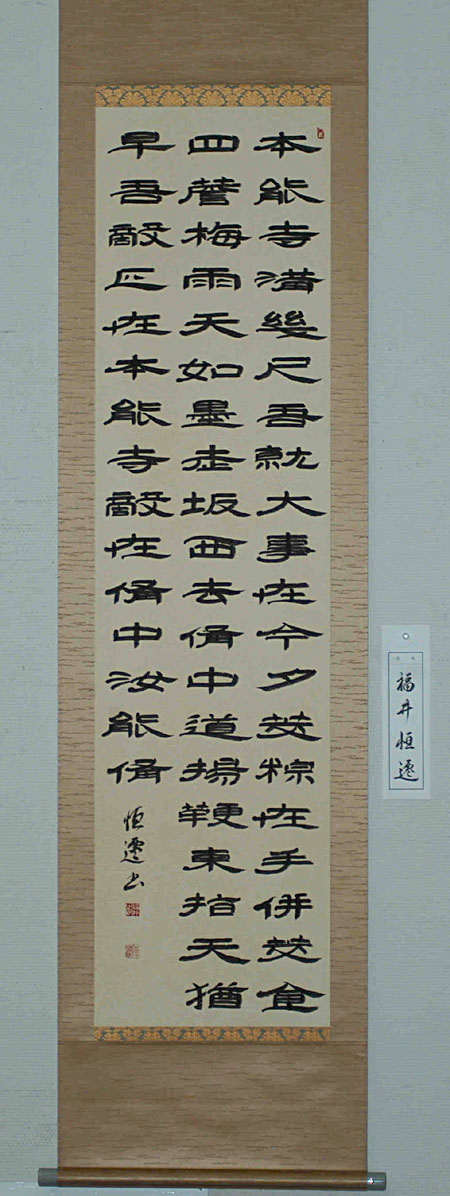 本能寺溝幾尺吾就大事在今夕茭粽在手併茭食
四簷梅雨天如墨老坂西去備中道揚鞭東指天猶
早吾敵正在本能寺敵在備中汝能備
恒遷書
福井恒遷